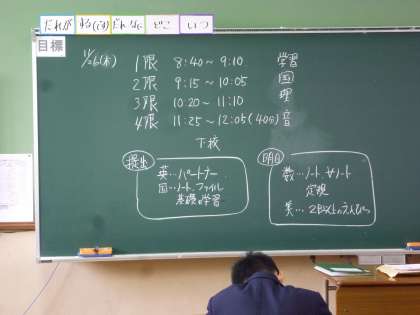 だれが
する(です)
どんな
どこ
いつ
目標
11/26(木)
1限 8:40～9:10 学習
2限 9:15～10:05 国
3限 10:20～11:10 理
4限 11:25～12:05(40分) 音
下校
提出
英…パートナー
国…ノート、ファイル
基礎の学習
明日
数…ノート、サノート
定規
英…2B以上のえんぴつ